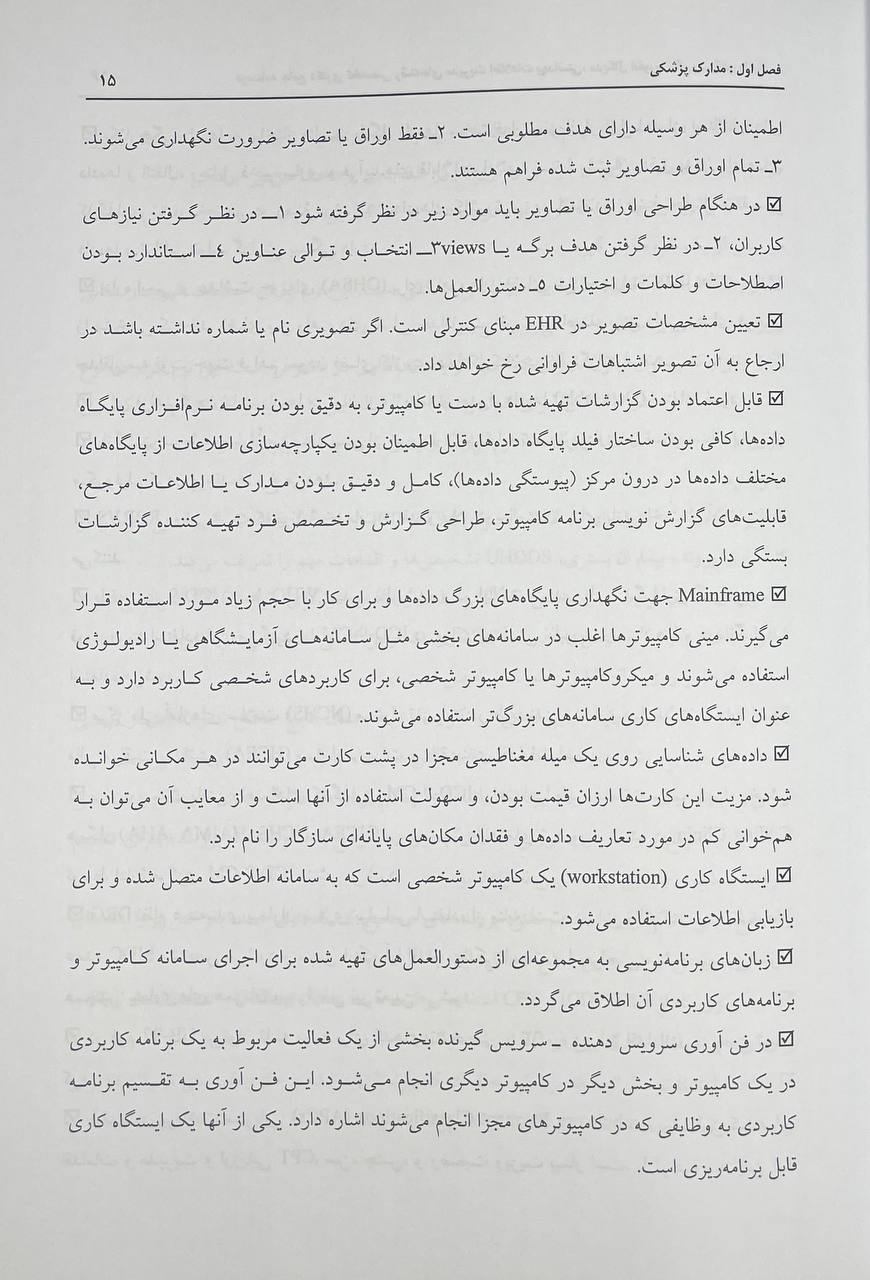 فصل اول : مدارک پزشکی ۱۵
اطمینان از هر وسیله دارای هدف مطلوبی است. ۲ـ فقط اوراق یا تصاویر ضرورت نگهداری می‌شوند.
۳ـ تمام اوراق و تصاویر ثبت شده فراهم هستند.
☑ در هنگام طراحی اوراق یا تصاویر باید موارد زیر در نظر گرفته شود ۱ـ در نظر گرفتن نیازهای
کاربران، ۲ـ در نظر گرفتن هدف برگه یا views۳ـ انتخاب و توالی عناوین ٤ـ استاندارد بودن
اصطلاحات و کلمات و اختیارات ٥ـ دستورالعمل‌ها.
☑ تعیین مشخصات تصویر در EHR مبنای کنترلی است. اگر تصویری نام یا شماره نداشته باشد در
ارجاع به آن تصویر اشتباهات فراوانی رخ خواهد داد.
☑ قابل اعتماد بودن گزارشات تهیه شده با دست یا کامپیوتر، به دقیق بودن برنامه نرم‌افزاری پایگاه
داده‌ها، کافی بودن ساختار فیلد پایگاه داده‌ها، قابل اطمینان بودن یکپارچه‌سازی اطلاعات از پایگاه‌های
مختلف داده‌ها در درون مرکز (پیوستگی داده‌ها)، کامل و دقیق بودن مدارک یا اطلاعات مرجع،
قابلیت‌های گزارش نویسی برنامه کامپیوتر، طراحی گزارش و تخصص فرد تهیه کننده گزارشات
بستگی دارد.
☑ Mainframe جهت نگهداری پایگاه‌های بزرگ داده‌ها و برای کار با حجم زیاد مورد استفاده قرار
می‌گیرند. مینی کامپیوترها اغلب در سامانه‌های بخشی مثل سامانه‌های آزمایشگاهی یا رادیولوژی
استفاده می‌شوند و میکروکامپیوترها یا کامپیوتر شخصی، برای کاربردهای شخصی کاربرد دارد و به
عنوان ایستگاه‌های کاری سامانه‌های بزرگ‌تر استفاده می‌شوند.
☑ داده‌های شناسایی روی یک میله مغناطیسی مجزا در پشت کارت می‌توانند در هر مکانی خوانده
شود. مزیت این کارت‌ها ارزان قیمت بودن، و سهولت استفاده از آنها است و از معایب آن می‌توان به
هم‌خوانی کم در مورد تعاریف داده‌ها و فقدان مکان‌های پایانه‌ای سازگار را نام برد.
☑ ایستگاه کاری (workstation) یک کامپیوتر شخصی است که به سامانه اطلاعات متصل شده و برای
بازیابی اطلاعات استفاده می‌شود.
☑ زبان‌های برنامه‌نویسی به مجموعه‌ای از دستورالعمل‌های تهیه شده برای اجرای سامانه کامپیوتر و
برنامه‌های کاربردی آن اطلاق می‌گردد.
☑ در فن آوری سرویس دهنده ـ سرویس گیرنده بخشی از یک فعالیت مربوط به یک برنامه کاربردی
در یک کامپیوتر و بخش دیگر در کامپیوتر دیگری انجام می‌شود. این فن آوری به تقسیم برنامه
کاربردی به وظایفی که در کامپیوترهای مجزا انجام می‌شوند اشاره دارد. یکی از آنها یک ایستگاه کاری
قابل برنامه‌ریزی است.